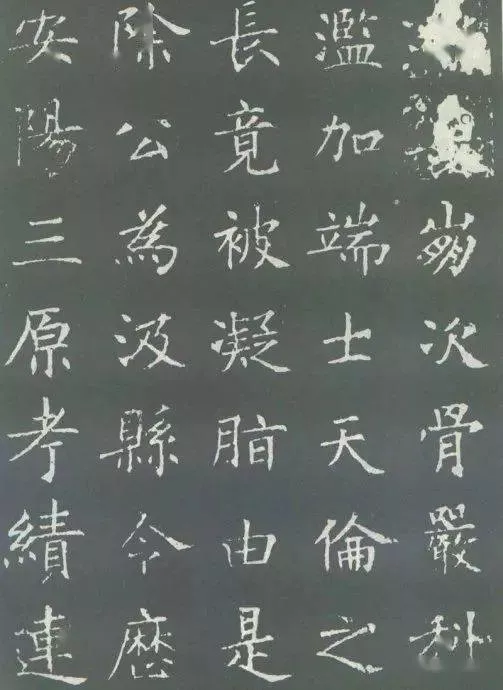 次骨嚴科
濫加端士天倫之
長竟被凝脂由是
除公為汲縣令厯
安陽三原考績連